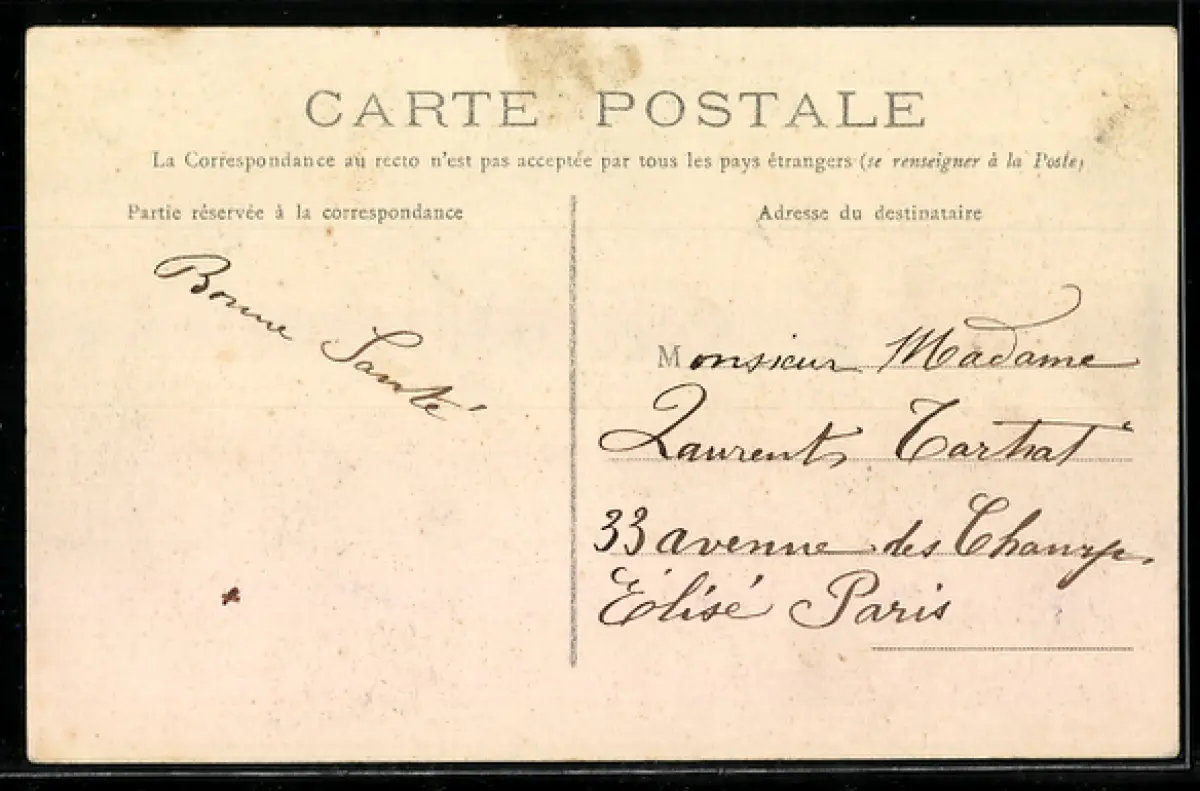 CARTE POSTALE
La Correspondance au recto n'est pas acceptée par tous les pays étrangers (se renseigner à la Poste)
Partie réservée à la correspondance
Adresse du destinataire
Bonne Santé
Monsieur Madame
Laurent Tartrat
33 avenue des Champs
Élisé Paris